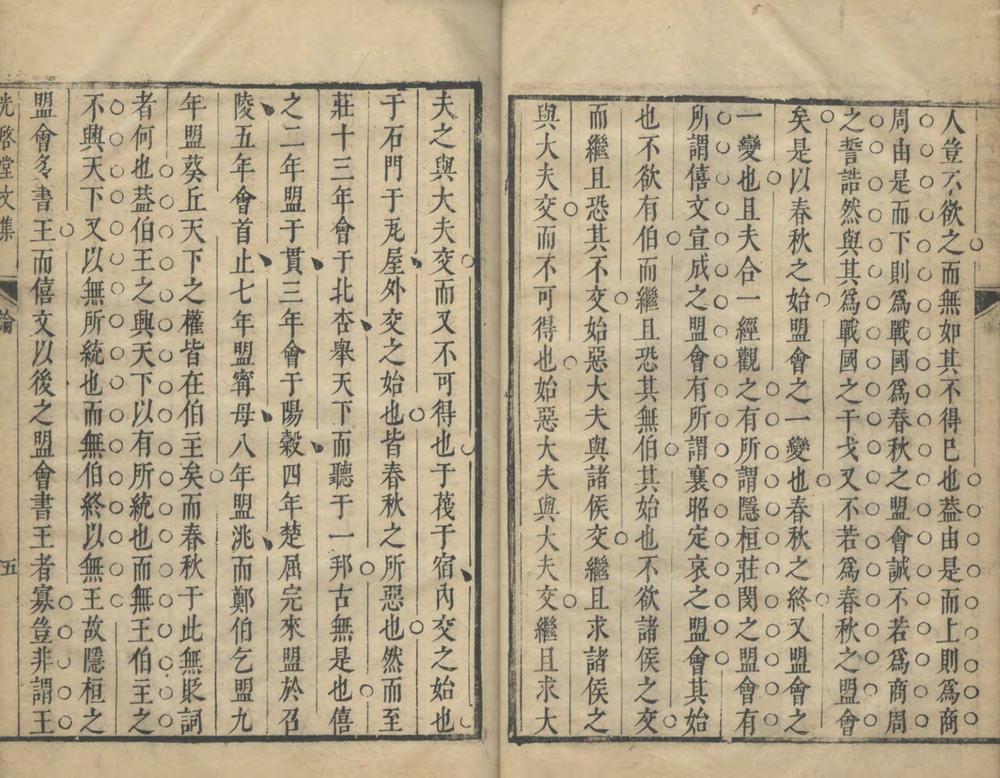 人豈不欲之而無如其不得已也葢由是而上則爲商
周由是而下則爲戰國爲春秋之盟會誠不若爲商周
之誓誥然與其爲戰國之干戈又不若爲春秋之盟會
矣是以春秋之始盟會之一變也春秋之終又盟會之
一變也且夫合一經觀之有所謂隱桓莊閔之盟會有
所謂僖文宣成之盟會有所謂襄昭定哀之盟會其始
也不欲有伯而繼且恐其無伯其始也不欲諸侯之交
而繼且恐其不交始惡大夫與諸侯交繼且求諸侯之
與大夫交而不可得也始惡大夫與大夫交繼且求大
夫之與大夫交而又不可得也于蔑于宿內交之始也
于石門于瓦屋外交之始也皆春秋之所惡也然而至
莊十三年會于北杏舉天下而聽于一邦古無是也僖
之二年盟于貫三年會于陽穀四年楚屈完來盟於召
陵五年會首止七年盟甯母八年盟洮而鄭伯乞盟九
年盟葵丘天下之權皆在伯主矣而春秋于此無貶詞
者何也葢伯王之興天下以有所統也而無王伯主之
不興天下又以無所統也而無伯終以無王故隱桓之
盟會多書王而僖文以後之盟會書王者寡豈非謂王
光啓堂文集
論
五